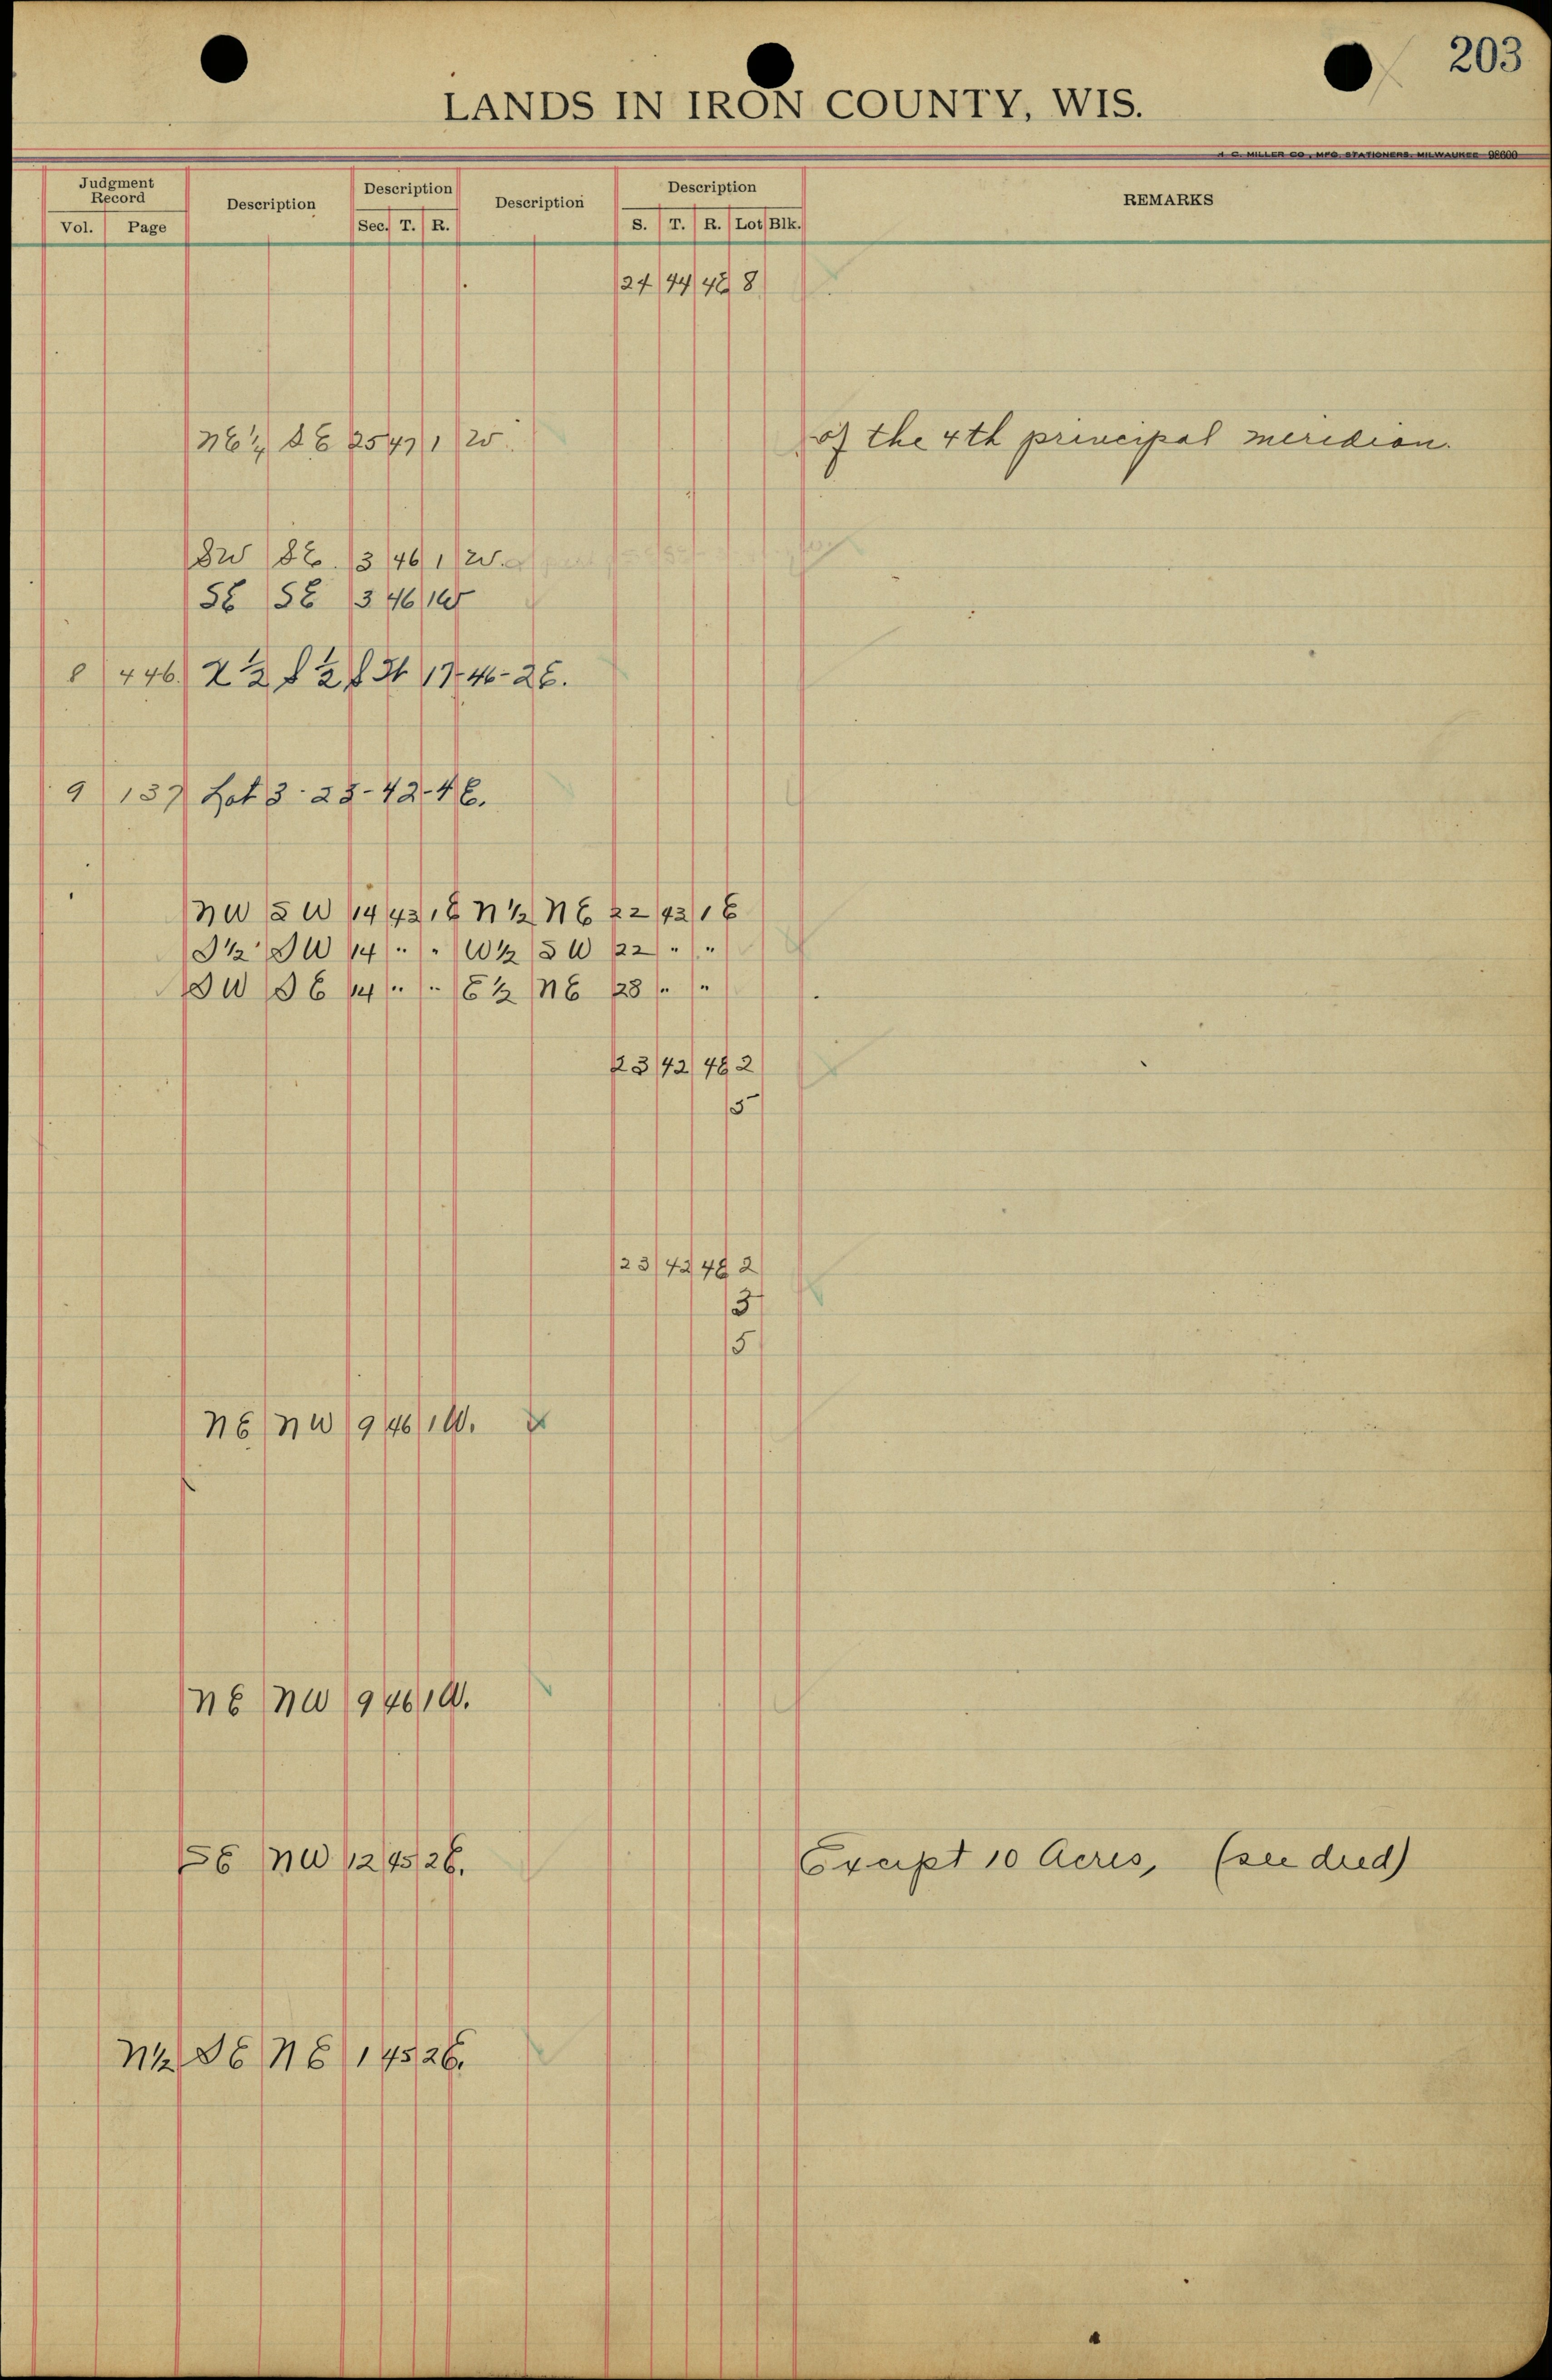 203
LANDS IN IRON COUNTY, WIS.
H. C. MILLER CO., MFG. STATIONERS, MILWAUKEE 98600
Judgment Record Description Description Description Description REMARKS
Vol. Page Sec. T. R. S. T. R. Lot Blk.
24 44 4E 8
NE¼ SE 25 47 1 W. of the 4th principal meridian.
SW SE. 3 46 1 W.
SE SE 3 46 1W
8 446 ½ S ½ 17-46-2E.
9 137 Lot 3-23-42-4E.
NW SW 14 43 1E N½ NE 22 43 1E
S½ SW 14 " " W½ SW 22 " "
SW SE 14 " " E½ NE 28 " "
23 42 4E 2
5
23 42 4E 2
3
5
NE NW 9 46 1W.
NE NW 9 46 1W.
SE NW 12 45 2E. Except 10 Acres, (see deed)
N½ SE NE 1 45 2E.